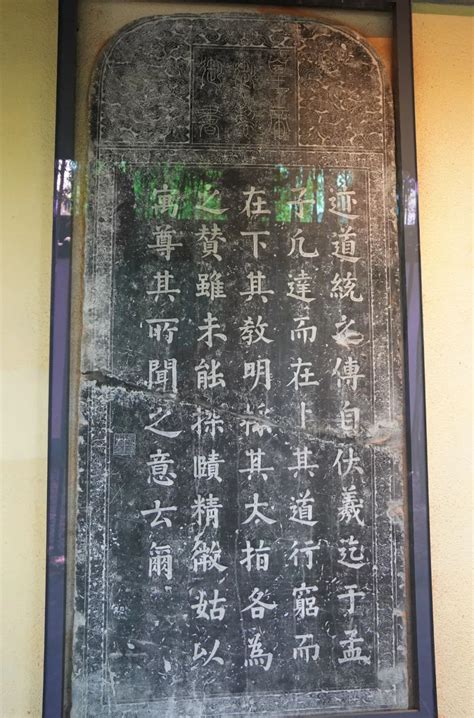 御書
迹道統之傳自伏羲迄于孟
子凡達而在上其道行窮而
在下其教明採其太指各為
之贊雖未能探賾精微姑以
寓尊其所聞之意云爾